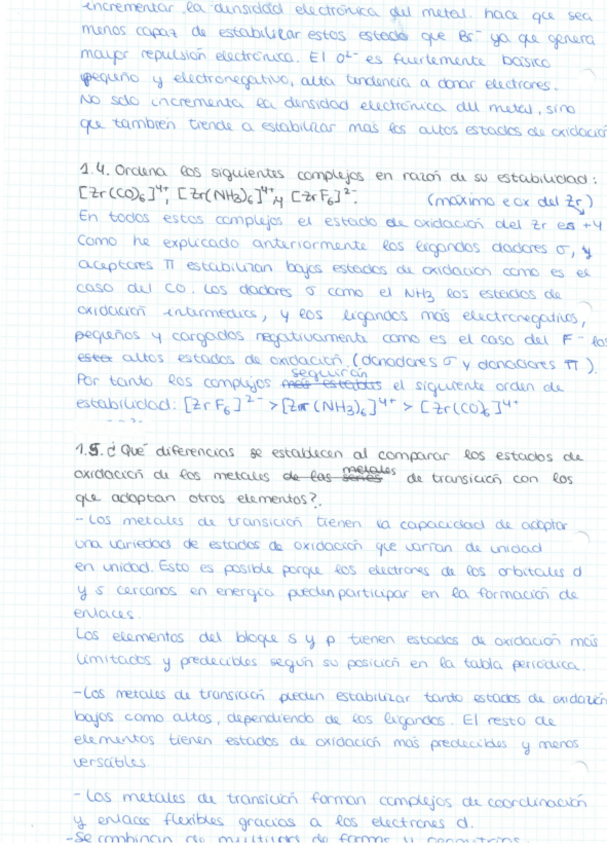 incrementar la densidad electrónica del metal. hace que sea
menos capaz de estabilizar estos estado que Br⁻ ya que genera
mayor repulsión electrónica. El O²⁻ es fuertemente básico
pequeño y electronegativo, alta tendencia a donar electrones.
No solo incrementa la densidad electrónica del metal, sino
que tambien tiende a estabilizar mas los altos estados de oxidació
1.4. Ordena los siguientes complejos en razón de su estabilidad:
[Zr(CO)₆]⁴⁺, [Zr(NH3)₆]⁴⁺ y [ZrF₆]²⁻. (máximo e ox del Zr)
En todos estos complejos el estado de oxidación del Zr es +4
Como he explicado anteriormente los ligandos dadores σ, y
aceptores π estabilizan bajos estados de oxidación como es el
caso del CO. Los dadores σ como el NH3 los estados de
oxidación intermedios, y los ligandos más electronegativos,
pequeños y cargados negativamente como es el caso del F⁻ los
altos estados de oxidación (donadores σ y donadores π).
Por tanto los complejos seguirán el siguiente orden de
estabilidad: [ZrF₆]²⁻ > [Zr(NH3)₆]⁴⁺ > [Zr(CO)₆]⁴⁺
1.5. ¿Qué diferencias se establecen al comparar los estados de
oxidación de los metales de las series metales de transición con los
que adoptan otros elementos?.
- Los metales de transición tienen la capacidad de adoptar
una variedad de estados de oxidación que varían de unidad
en unidad. Esto es posible porque los electrones de los orbitales d
y s cercanos en energía pueden participar en la formación de
enlaces.
Los elementos del bloque s y p tienen estados de oxidación más
limitados y predecibles según su posición en la tabla periódica.
- Los metales de transición pueden estabilizar tanto estados de oxidación
bajos como altos, dependiendo de los ligandos. El resto de
elementos tienen estados de oxidación más predecibles y menos
versátiles
- Los metales de transición forman complejos de coordinación
y enlaces flexibles gracias a los electrones d.
- Se combinan de multiples de formas y